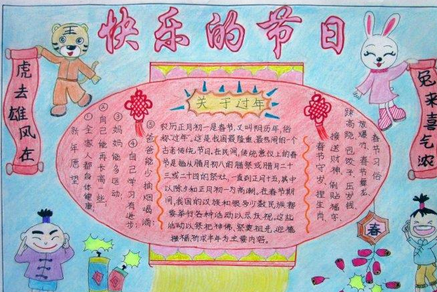 快乐的节日
虎去雄风在
兔来喜气浓
关于过年
农历正月初一是春节,又叫阴历年,俗
称"过年",这是我国最隆重、最热闹的一个
古老传统节日。在民间,传统意义上的春
节是指从腊月初八的腊祭或腊月二十
三或二十四的祭灶,一直到正月十五,其中
以除夕和正月初一为高潮。在春节期
间,我国的汉族和很多少数民族都
要举行各种活动以示庆祝。这些
活动以祭祀神佛、祭奠祖先、迎禧
接福、祈求丰年为主要内容。
新年愿望
①全家人都身体健康。
②自己能再长高些。
③妈妈能多运动
④自己学习有进步
⑤爸爸能少抽烟喝酒
春节习俗
接送财神
倒贴福字
春节少发
春